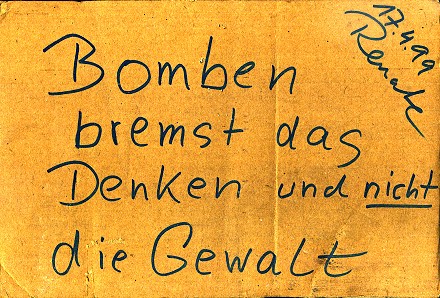 17.4.99
Renate
Bomben
bremst das
Denken und nicht
die Gewalt